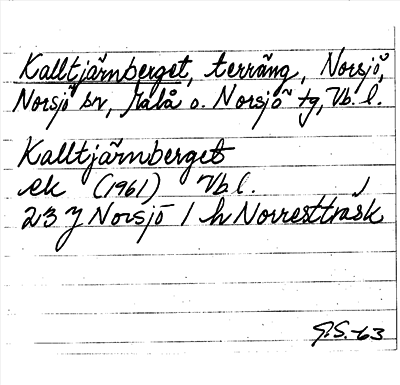 Kalltjärnberget, terräng, Norsjö,
Norsjö sn, Malå o. Norsjö tg, Vb. l.
Kalltjärnberget
ek (1961) Vb l.
23 Norsjö 1 h Norresttrask
G.S.-63